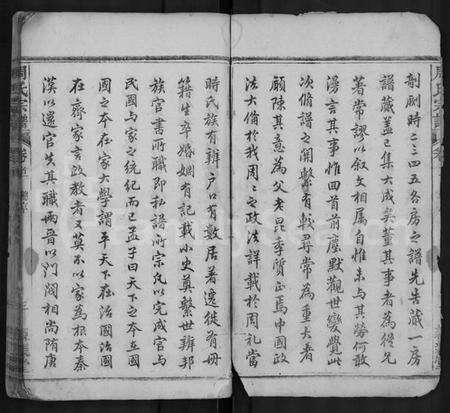 剞劂時二三四五各房之譜先告蕆一房
譜蕆葢已集大成矣董其事者為從兄
著常謬以叙文相屬自惟未与其勞何敢
漫言其事惟回首前塵默觀世變覺此
次脩譜之關繫有較尋常為重大者
願陳其意為父老昆季質正焉中國政
法大備於我周周之政法詳載於周礼當
時氏族有辨户口有數居著遷徙有册
籍生卒婚姻有記載小史奠繫世辨邦
族官書所職即私譜所宗凡以完成官与
民國与家之統紀而已孟子曰天下之本在國
國之本在家大學謂平天下在治國治國
在齊家言政教者又莫不以家為根本秦
漢以還官失其職兩晋以門閥相尚隋唐
周氏宗譜
卷首